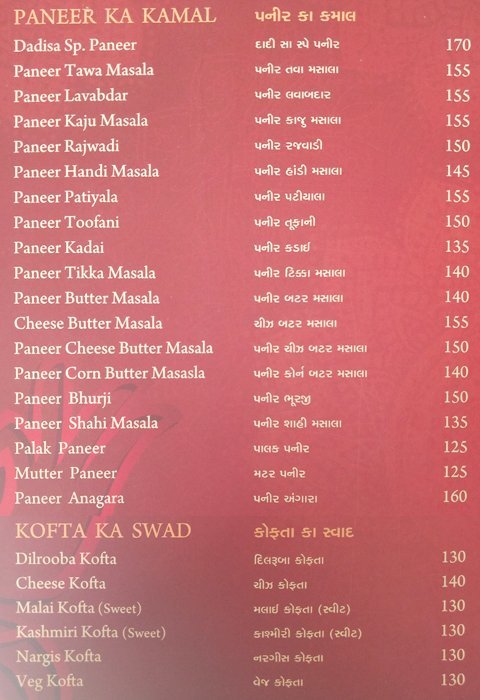 PANEER KA KAMAL પનીર કા કમાલ
Dadisa Sp. Paneer દાદી સા સ્પે પનીર 170
Paneer Tawa Masala પનીર તવા મસાલા 155
Paneer Lavabdar પનીર લવાબદાર 155
Paneer Kaju Masala પનીર કાજુ મસાલા 155
Paneer Rajwadi પનીર રજવાડી 150
Paneer Handi Masala પનીર હાંડી મસાલા 145
Paneer Patiyala પનીર પટીયાલા 155
Paneer Toofani પનીર તૂફાની 150
Paneer Kadai પનીર કડાઈ 135
Paneer Tikka Masala પનીર ટિક્કા મસાલા 140
Paneer Butter Masala પનીર બટર મસાલા 140
Cheese Butter Masala ચીઝ બટર મસાલા 155
Paneer Cheese Butter Masala પનીર ચીઝ બટર મસાલા 150
Paneer Corn Butter Masasla પનીર કોર્ન બટર મસાલા 140
Paneer Bhurji પનીર ભૂરજી 150
Paneer Shahi Masala પનીર શાહી મસાલા 135
Palak Paneer પાલક પનીર 125
Mutter Paneer મટર પનીર 125
Paneer Anagara પનીર અંગારા 160
KOFTA KA SWAD કોફતા કા સ્વાદ
Dilrooba Kofta દિલરૂબા કોફતા 130
Cheese Kofta ચીઝ કોફતા 140
Malai Kofta (Sweet) મલાઈ કોફતા (સ્વીટ) 130
Kashmiri Kofta (Sweet) કાશ્મીરી કોફતા (સ્વીટ) 130
Nargis Kofta નરગીસ કોફતા 130
Veg Kofta વેજ કોફતા 130